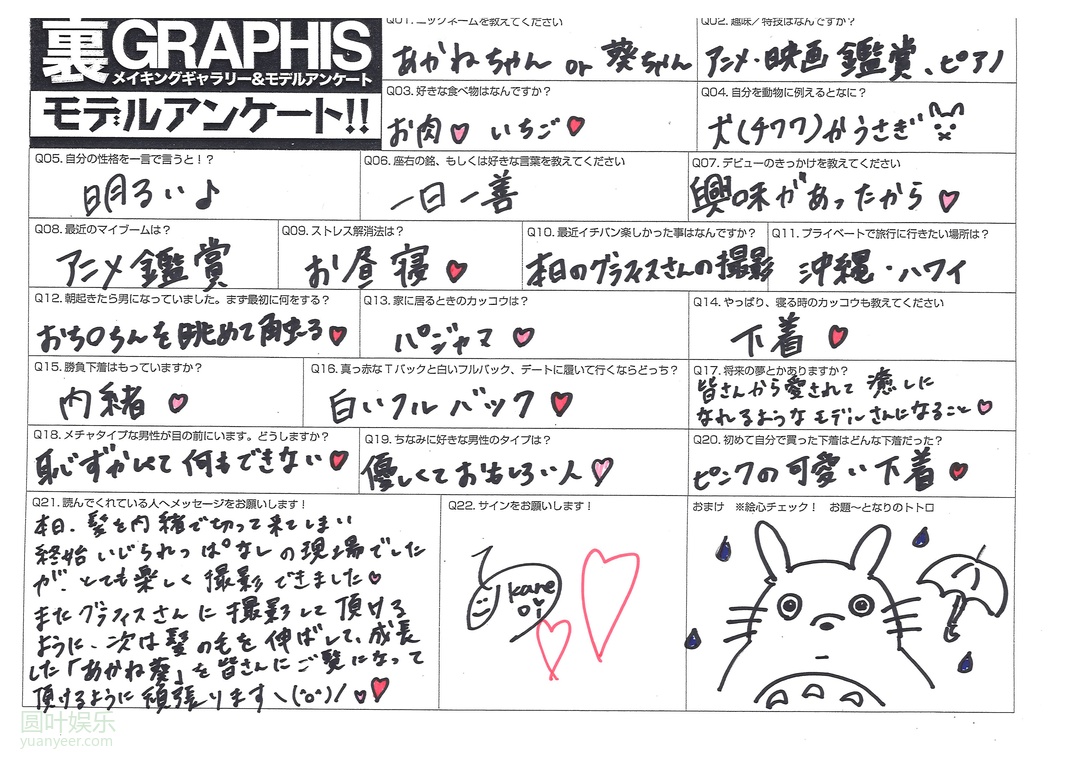 裏GRAPHIS
メイキングギャラリー&モデルアンケート
モデルアンケート!!
Q01. ニックネームを教えてください
あかねちゃん or 葵ちゃん
Q02. 趣味／特技はなんですか？
アニメ・映画鑑賞、ピアノ
Q03. 好きな食べ物はなんですか？
お肉♡ いちご♥
Q04. 自分を動物に例えるとなに？
犬(チワワ)かうさぎ
Q05. 自分の性格を一言で言うと！？
明るい♪
Q06. 座右の銘、もしくは好きな言葉を教えてください
一日一善
Q07. デビューのきっかけを教えてください
興味があったから♡
Q08. 最近のマイブームは？
アニメ鑑賞
Q09. ストレス解消法は？
お昼寝♥
Q10. 最近イチバン楽しかった事はなんですか？
本日のグラフィスさんの撮影
Q11. プライベートで旅行に行きたい場所は？
沖縄・ハワイ
Q12. 朝起きたら男になっていました。まず最初に何をする？
おち○ちんを眺めて触る♥
Q13. 家に居るときのカッコウは？
パジャマ♡
Q14. やっぱり、寝る時のカッコウも教えてください
下着♥
Q15. 勝負下着はもっていますか？
内緒♡
Q16. 真っ赤なTバックと白いフルバック、デートに履いて行くならどっち？
白いフルバック♥
Q17. 将来の夢とかありますか？
皆さんから愛されて癒しに
なれるようなモデルさんになること♡
Q18. メチャタイプな男性が目の前にいます。どうしますか？
恥ずかしくて何もできない♥
Q19. ちなみに好きな男性のタイプは？
優しくておもしろい人♡
Q20. 初めて自分で買った下着はどんな下着だった？
ピンクの可愛い下着♥
Q21. 読んでくれている人へメッセージをお願いします！
本日、髪を内緒で切って来てしまい
終始いじられっぱなしの現場でした
が、とても楽しく撮影できました♡
またグラフィスさんに撮影して頂ける
ように、次は髪の毛を伸ばして、成長
した「あかね葵」を皆さんにご覧になって
頂けるように頑張ります＼(°o°)／♡♥
Q22. サインをお願いします！
kane
おまけ ※絵心チェック！ お題〜となりのトトロ
圆叶娱乐
yuanyeer.com